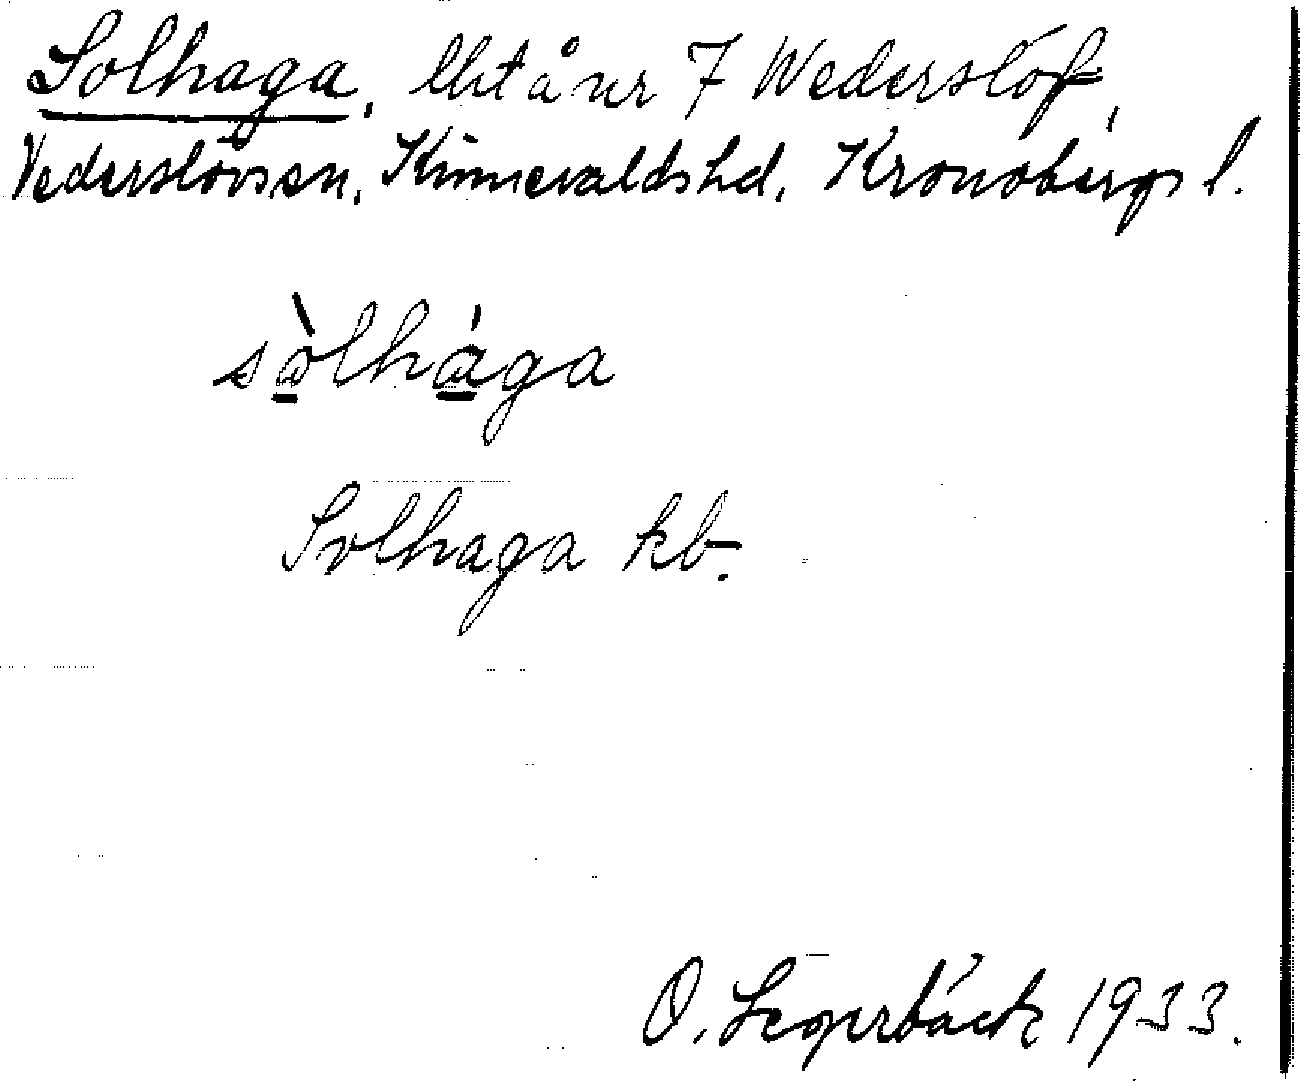 Solhaga, lht å nr 7 Wederslöf,
Vederslövs sn, Kinnevalds hd, Kronobergs l.
sòlhága
Solhaga kb.
O. Segerbäck 1933.